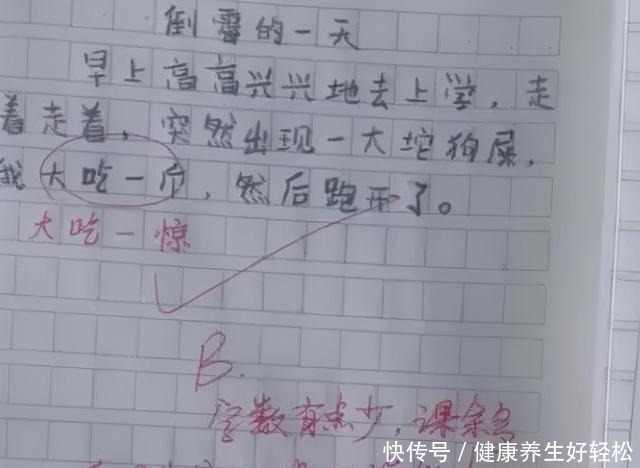 倒霉的一天
早上高高兴兴地去上学,走
着走着,突然出现一大坨狗屎,
我大吃一斤,然后跑开了。
大吃一惊
B.
字数有点少,课余多
快传号/健康养生好轻松